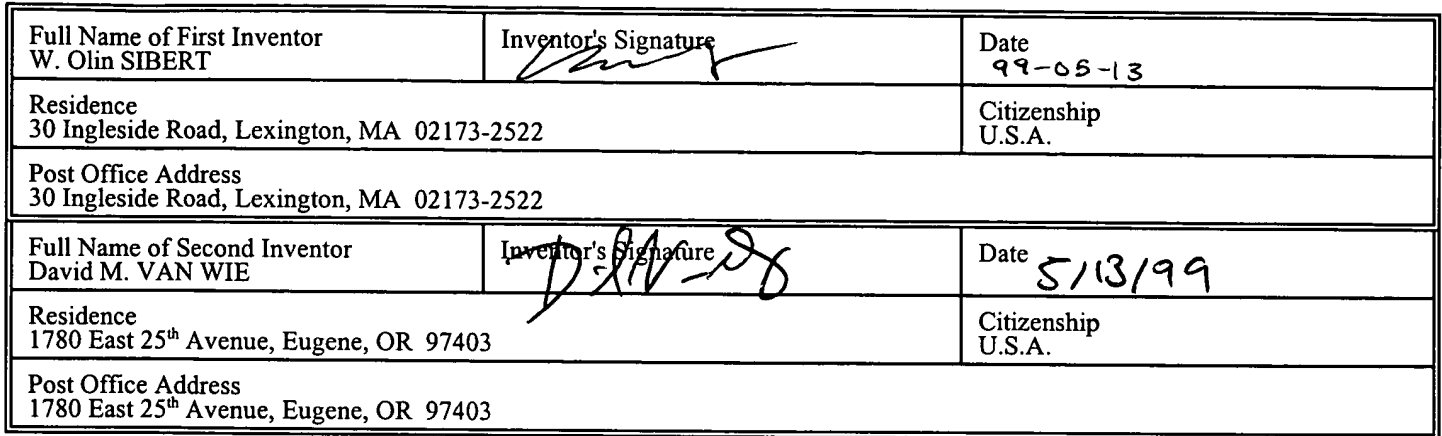 Full Name of First Inventor
W. Olin SIBERT
Inventor's Signature
Date
99-05-13
Residence
30 Ingleside Road, Lexington, MA 02173-2522
Citizenship
U.S.A.
Post Office Address
30 Ingleside Road, Lexington, MA 02173-2522
Full Name of Second Inventor
David M. VAN WIE
Inventor's Signature
Date
5/13/99
Residence
1780 East 25th Avenue, Eugene, OR 97403
Citizenship
U.S.A.
Post Office Address
1780 East 25th Avenue, Eugene, OR 97403